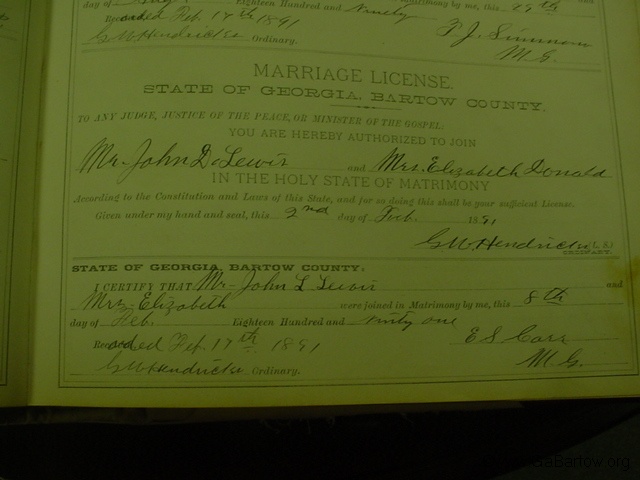 day of Eighteen Hundred and Ninety Matrimony by me, this 29th
Recorded Feb. 17th 1891
G W Hendricks Ordinary.
P. J. Simmons
M. G.
MARRIAGE LICENSE.
STATE OF GEORGIA, BARTOW COUNTY.
TO ANY JUDGE, JUSTICE OF THE PEACE, OR MINISTER OF THE GOSPEL.
YOU ARE HEREBY AUTHORIZED TO JOIN
Mr. John D. Lewis and Mrs. Elizabeth Donald
IN THE HOLY STATE OF MATRIMONY
According to the Constitution and Laws of this State, and for so doing this shall be your sufficient License.
Given under my hand and seal, this 2nd day of Feb. 1891
G W. Hendricks (L. S.)
ORDINARY.
STATE OF GEORGIA, BARTOW COUNTY:
I CERTIFY THAT Mr. John L Lewis and
Mrs. Elizabeth were joined in Matrimony by me, this 8th
day of Feb. Eighteen Hundred and ninty one
Recorded Feb. 17th 1891
E S Carr
M. G.
G W Hendricks Ordinary.
Bartow.org